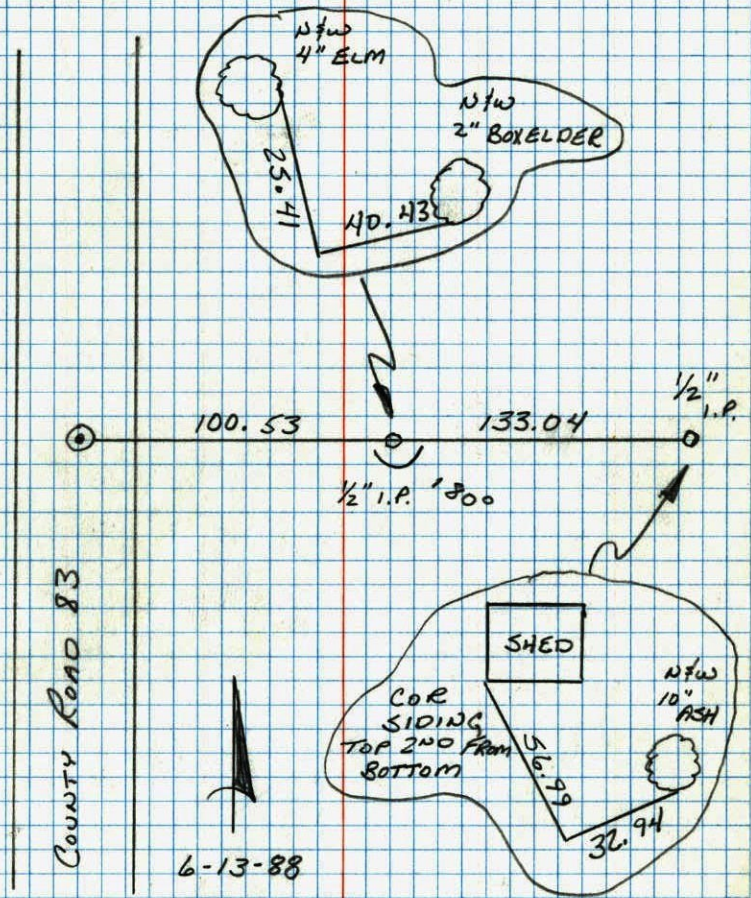 N&W
4" ELM
N&W
2" BOXELDER
25.41
40.43
100.53
133.04
1/2"
I.P.
1/2" I.P.
COUNTY ROAD 83
SHED
N&W
10"
ASH
COR
SIDING
TOP 2ND FROM
BOTTOM
56.99
32.94
6-13-88